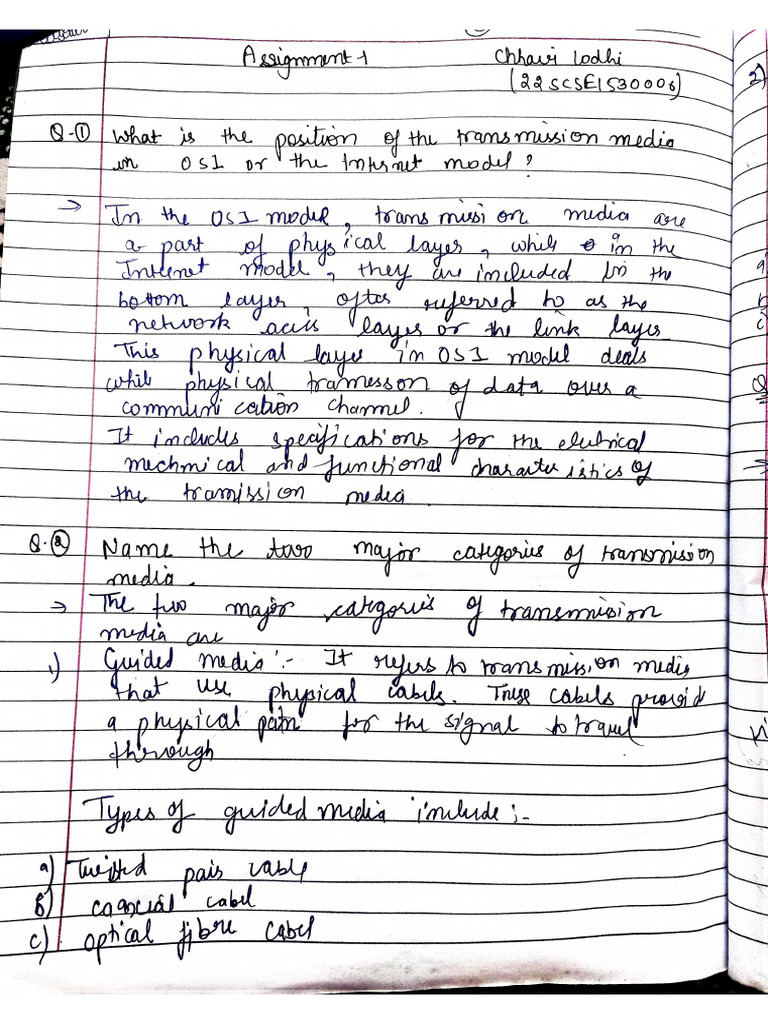 Assignment-1 Chhavi Lodhi
(22SCSE1530006)
Q-① What is the position of the transmission media
in OSI or the Internet model?
→ In the OSI model, transmission media are
a part of physical layer, while in the
Internet model, they are included in the
bottom layer, often referred to as the
network accis layer or the link layer
This physical layer in OSI model deals
while physical tramesson of data over a
communication channel.
It includes specifications for the eletrical
mechnical and functional characteristics of
the tramission media
Q.② Name the two major categories of transmission
media.
→ The two major categories of transmission
media are
1) Guided media :- It refers to transmission media
that use physical cabels. These cabels provid
a physical path for the signal to travel
through
Types of guided media include :-
a) Twisted pair cable
b) coaxial cabel
c) optical fibre cabel
2)